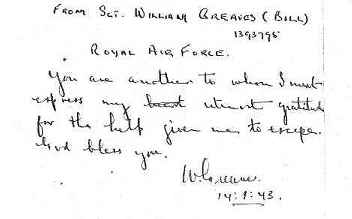 FROM SGT. WILLIAM GREAVES (BILL)
1393795
ROYAL AIR FORCE.
You are another to whom I must
express my heart utmost gratitude
for the help given me to escape.
God bless you.
W Greaves.
14:1:43.